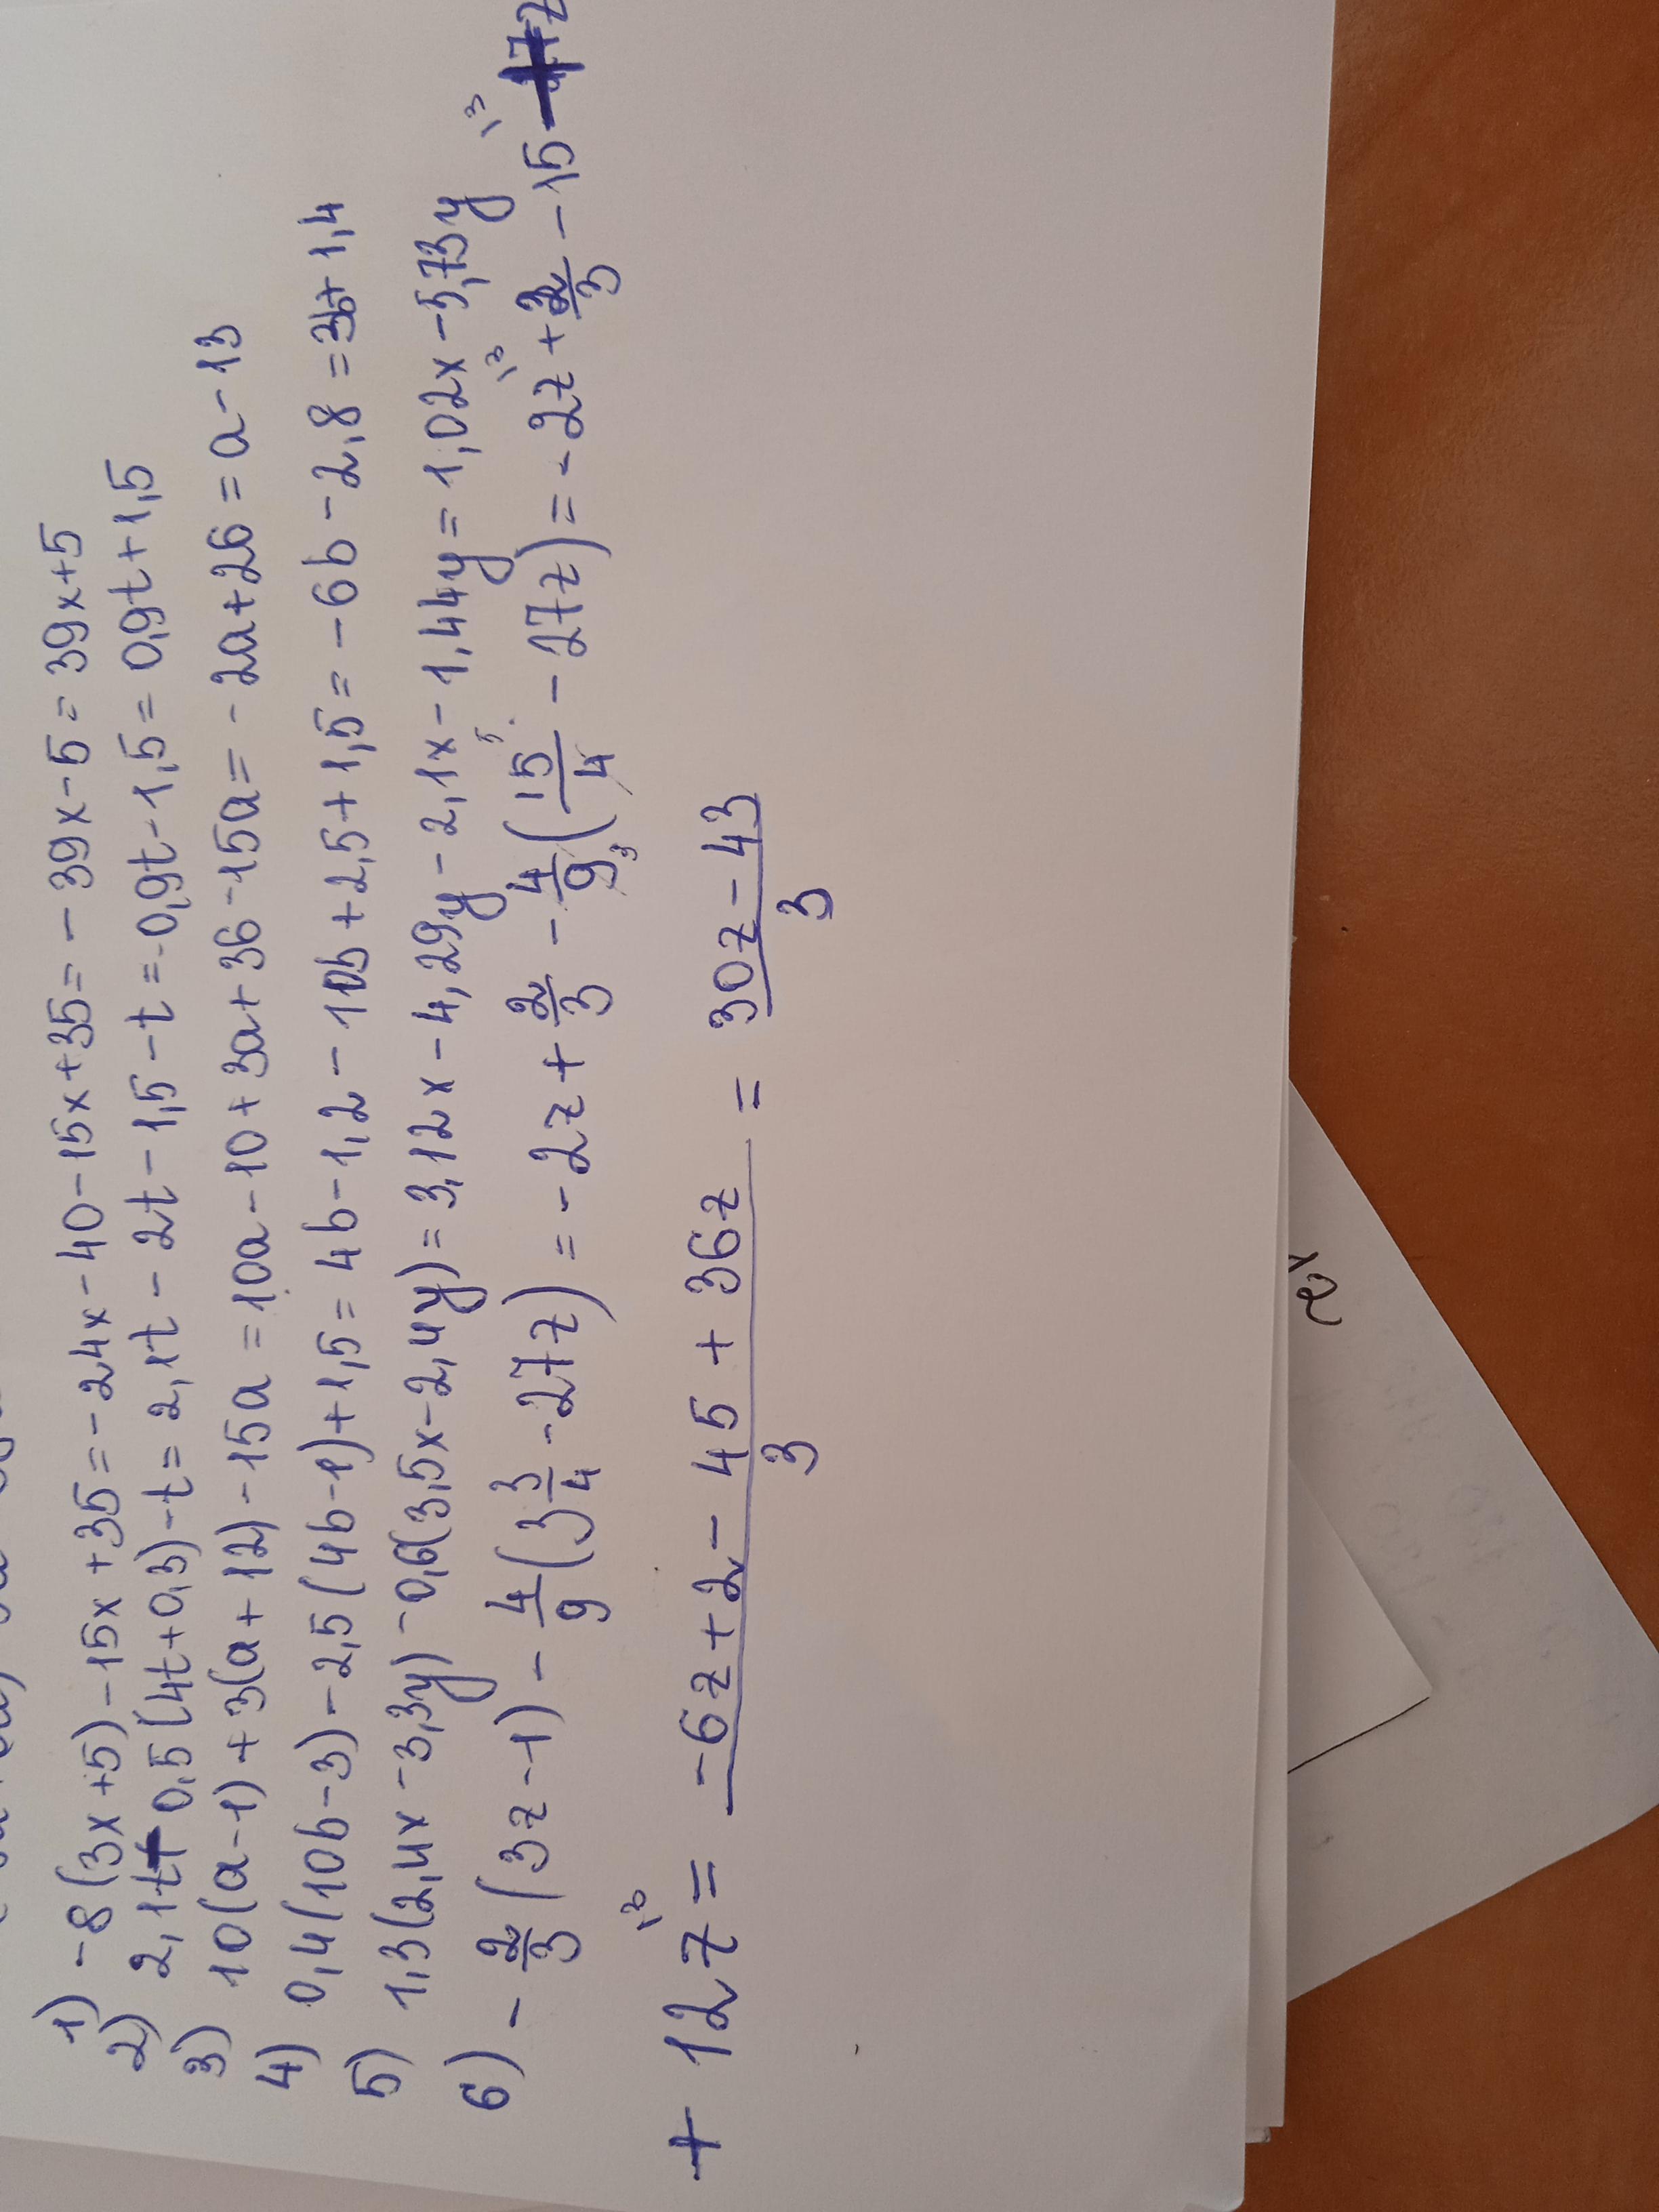 1) -8(3x+5)-15x+35=-24x-40-15x+35=-39x-5=39x+5
2) 2,1t-0,5(4t+0,3)-t=2,1t-2t-1,5-t=-0,9t-1,5=0,9t+1,5
3) 10(a-1)+3(a+12)-15a=10a-10+3a+36-15a=-2a+26=a-13
4) 0,4(10b-3)-2,5(4b-1)+1,5=4b-1,2-10b+2,5+1,5=-6b-2,8=3b+1,4
5) 1,3(2,4x-3,3y)-0,6(3,5x-2,4y)=3,12x-4,29y-2,1x-1,44y=1,02x-5,73y
6) -2/3(3z-1)-4/9(3 3/4-27z)=-2z+2/3-4/9(15/4-27z)=-2z+2/3-15
+12z=(-6z+2-45+36z)/3=(30z-43)/3